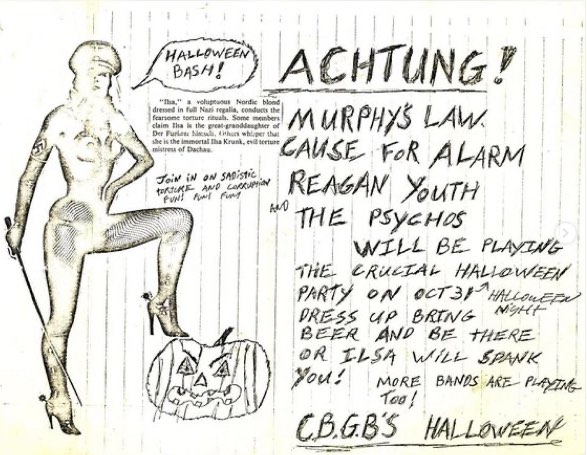 HALLOWEEN
BASH!
"Ilsa," a voluptuous Nordic blond
dressed in full Nazi regalia, conducts the
fearsome torture rituals. Some members
claim Ilsa is the great-granddaughter of
Der Fuehrer himself. Others whisper that
she is the immortal Ilsa Krunk, evil torture
mistress of Dachau.
JOIN IN ON SADISTIC
TORTURE AND CORRUPTION
FUN! FUN! FUN!
ACHTUNG!
MURPHY'S LAW
CAUSE FOR ALARM
REAGAN YOUTH
AND THE PSYCHOS
WILL BE PLAYING
THE CRUCIAL HALLOWEEN
PARTY ON OCT 31ST HALLOWEEN
NIGHT
DRESS UP BRING
BEER AND BE THERE
OR ILSA WILL SPANK
YOU! MORE BANDS ARE PLAYING
TOO!
C.B.G.B'S HALLOWEEN